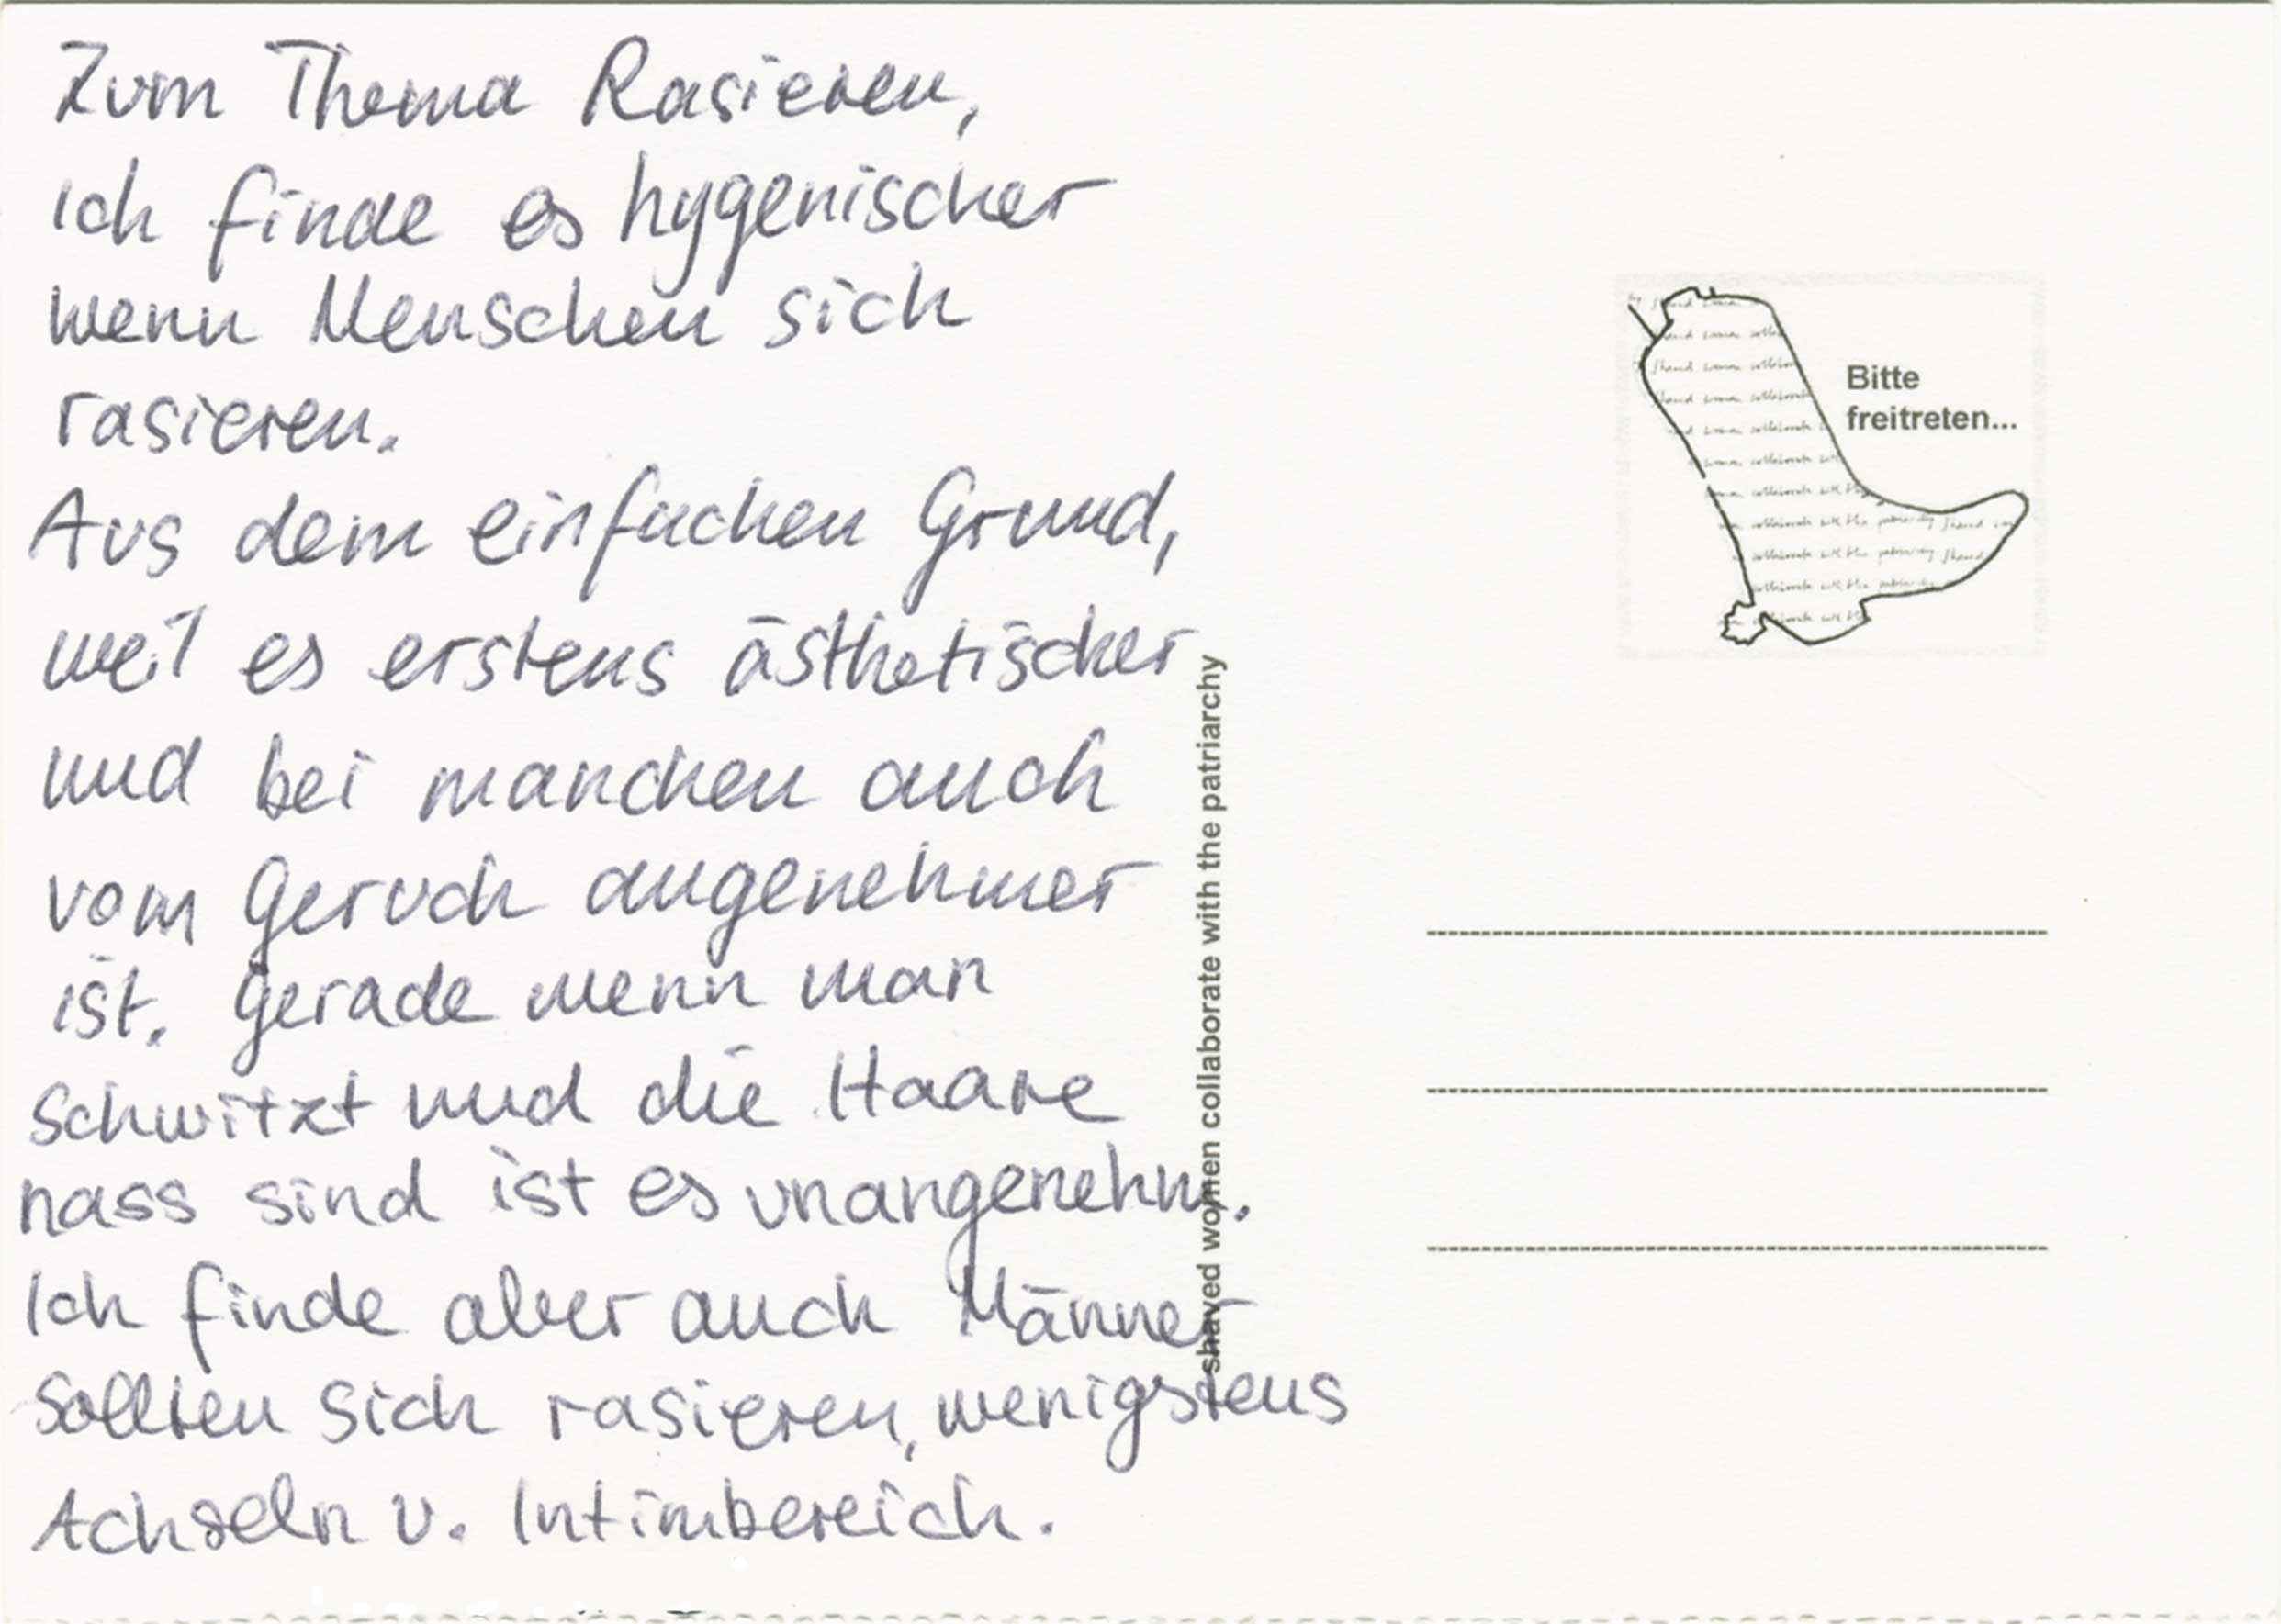 Zum Thema Rasieren,
ich finde es hygenischer
wenn Menschen sich
rasieren.
Aus dem einfachen Grund,
weil es erstens ästhetischer
und bei manchen auch
vom Geruch angenehmer
ist. Gerade wenn man
schwitzt und die Haare
nass sind ist es unangenehm.
Ich finde aber auch Männer
sollten sich rasieren, wenigstens
Achseln u. Intimbereich.
shaved women collaborate with the patriarchy
Bitte
freitreten...